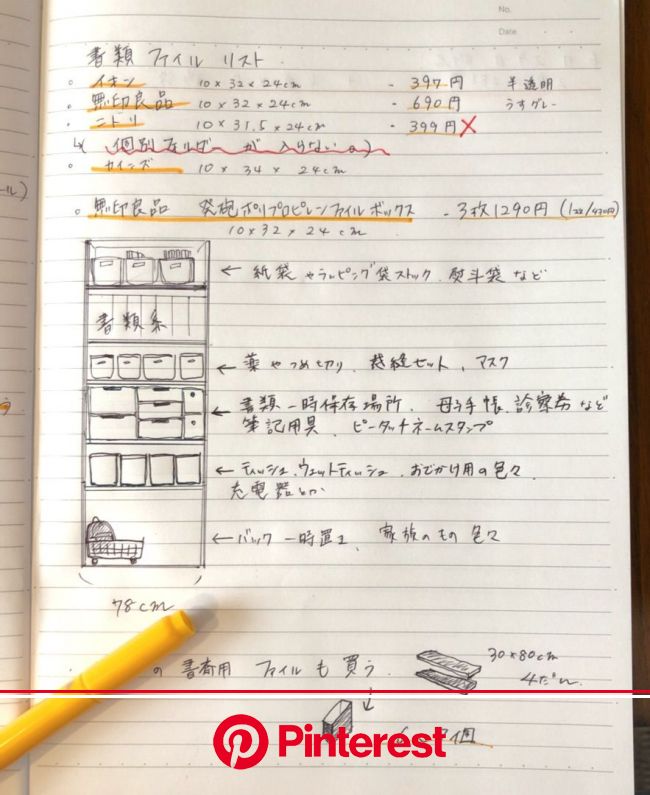 No.
Date
書類 ファイル リスト
○ イオン 10×32×24cm - 397円 半透明
○ 無印良品 10×32×24cm - 690円 うすグレー
○ ニトリ 10×31.5×24cm - 399円 ×
↳ 個別 が 入らない
○ カインズ 10×34×24cm
○ 無印良品 発泡ポリプロピレンファイルボックス - 3枚1290円 (1コ/430円)
10×32×24cm
← 紙袋やラッピング袋ストック、熨斗袋など
書類系
← 薬やつめ切り、裁縫セット、マスク
← 書類一時保存場所、母子手帳、診察券など
筆記用具、ピータッチネームスタンプ
← ティッシュ、ウェットティッシュ、おでかけ用の色々
充電器とか
← バック一時置き、家族のもの色々
78cm
の書斎用 ファイルも買う
30×80cm
4だん
個
Pinterest